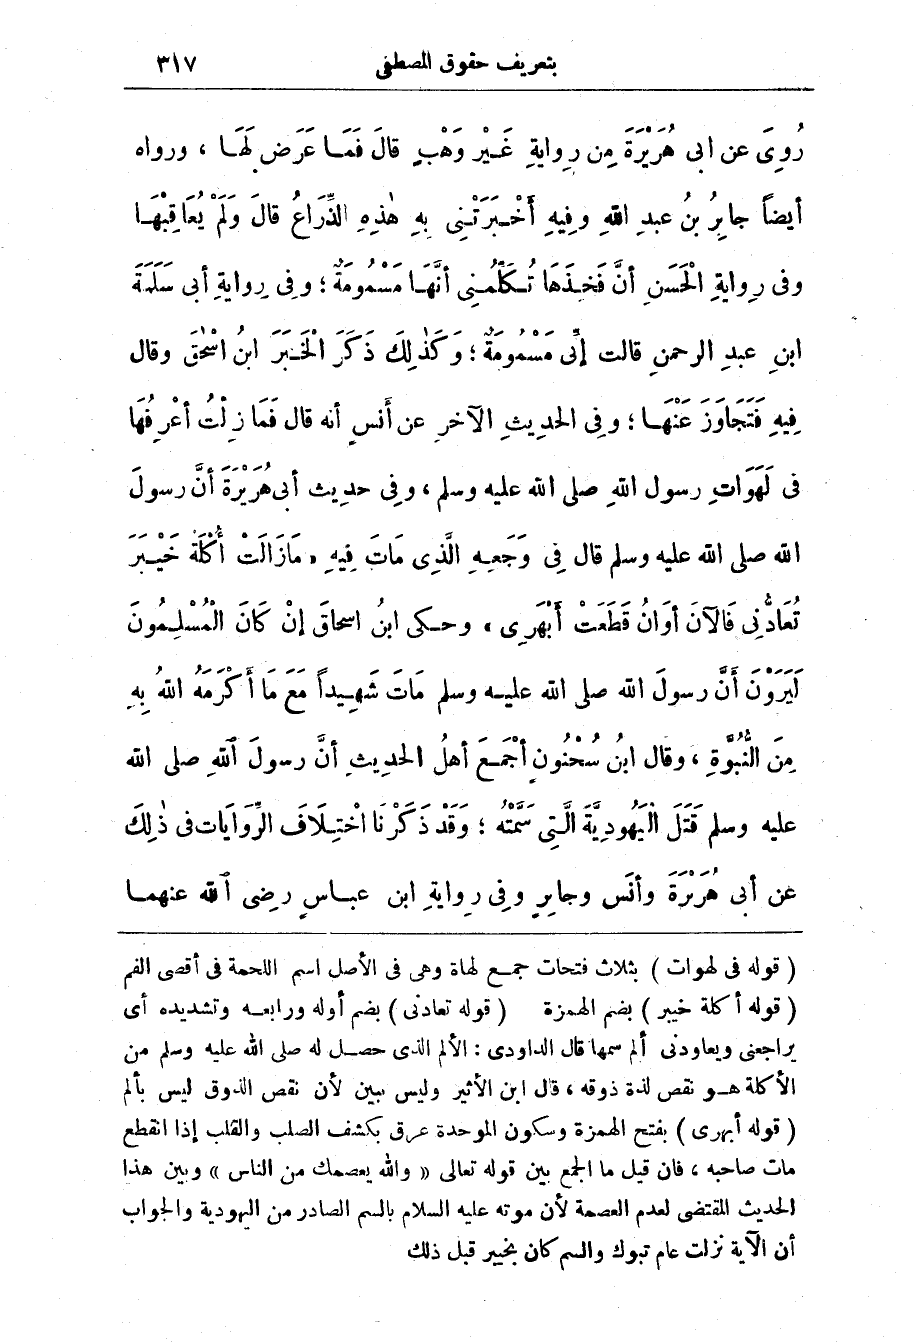 بتعريف حقوق المصطفى ٣١٧
رُوِىَ عن ابى هُرَيْرَةَ مِن رِوايةِ غَيْر وَهْبٍ قالَ فَمَا عَرَض لَهَا ، ورواه
أيضاً جابِرُ بنُ عبدِ اللهِ وفِيهِ أَخْبَرَتْنِى بِهِ هٰذِهِ الذِّرَاعُ قالَ وَلَمْ يُعَاقِبْهَا
وفى رِوايةِ الْحَسَنِ أنَّ فَخِذَهَا تُكَلِّمُنِى أنَّهَا مَسْمُومَةٌ ؛ وفى رِوايةِ أبى سَلَمَةَ
ابنِ عبدِ الرحمنِ قالت إنِّى مَسْمُومَةٌ ؛ وَكَذٰلِكَ ذَكَرَ الْخَبَرَ ابنُ اسْحٰقَ وقال
فِيهِ فَتَجَاوَزَ عَنْهَا ؛ وفى الحديثِ الآخرِ عن أَنسٍ أنه قال فَمَا زِلْتُ أعْرِفُهَا
فى لَهَوَاتِ رسول اللهِ صلى الله عليه وسلم ، وفى حديث أبى هُرَيْرَةَ أنَّ رسولَ
الله صلى الله عليه وسلم قال فِى وَجَعِهِ الَّذِى مَاتَ فِيهِ « مَازَالَتْ أُكْلَةُ خَيْبَرَ
تُعَادُّنِى فَالآنَ أوَانُ قَطَعَتْ أَبْهَرِى » وحكى ابنُ اسحاقَ إنْ كَانَ الْمُسْلِمُونَ
لَيَرَوْنَ أَنَّ رسولَ الله صلى الله عليه وسلم مَاتَ شَهِيداً مَعَ مَا أَكْرَمَهُ اللهُ بِهِ
مِنَ النُّبُوَّةِ ، وقال ابنُ سُحْنُونٍ أَجْمَعَ أهلُ الحديثِ أنَّ رسولَ اللهِ صلى الله
عليه وسلم قَتَلَ الْيَهُودِيَّةَ الَّتِى سَمَّتْهُ ؛ وَقَدْ ذَكَرْنَا اخْتِلَافَ الرِّوَايَاتِ فى ذٰلِكَ
عن أبى هُرَيْرَةَ وأَنَسٍ وجابِرٍ وفى رِوايةِ ابن عباسٍ رضى الله عنهما
( قوله فى لهوات ) بثلاث فتحات جمع لهاة وهى فى الأصل اسم اللحمة فى أقصى الفم
( قوله أكلة خيبر ) بضم الهمزة ( قوله تعادنى ) بضم أوله ورابعه وتشديده أى
يراجعنى ويعاودنى ألم سمها قال الداودى : الألم الذى حصل له صلى الله عليه وسلم من
الأكلة هو نقص لذة ذوقه ، قال ابن الأثير وليس ببين لأن نقص الذوق ليس بألم
( قوله أبهرى ) بفتح الهمزة وسكون الموحدة عرق بكشف الصلب والقلب إذا انقطع
مات صاحبه ، فان قيل ما الجمع بين قوله تعالى « والله يعصمك من الناس » وبين هذا
الحديث المقتضى لعدم العصمة لأن موته عليه السلام بالسم الصادر من اليهودية والجواب
أن الآية نزلت عام تبوك والسم كان بخيبر قبل ذلك